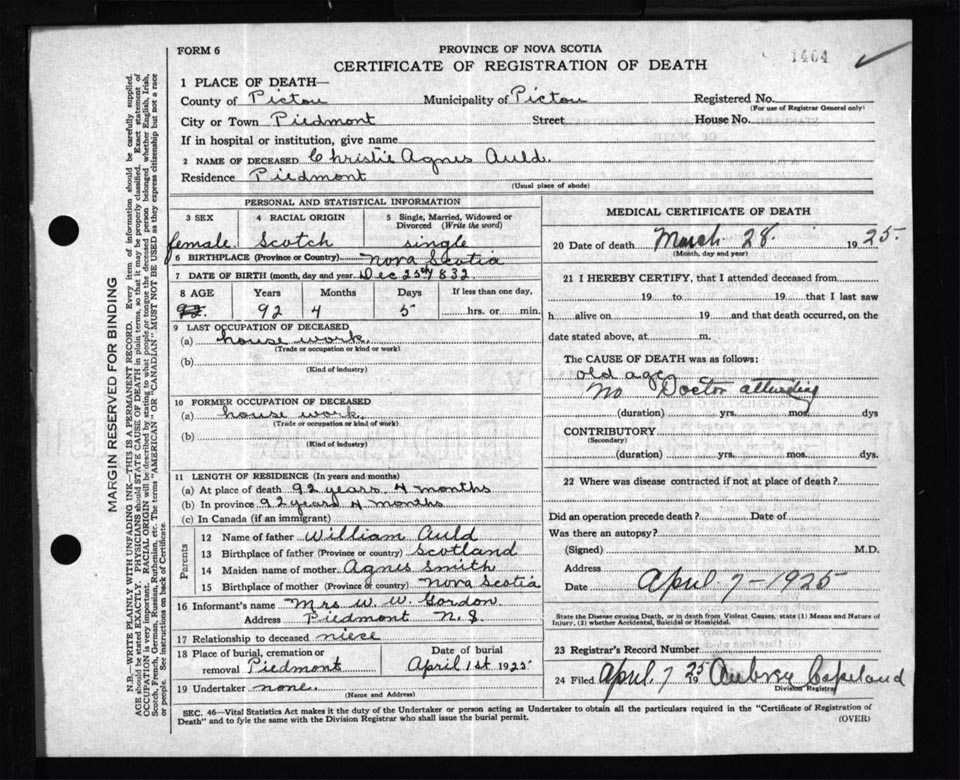 FORM 6
PROVINCE OF NOVA SCOTIA
1464
CERTIFICATE OF REGISTRATION OF DEATH
1 PLACE OF DEATH—
County of Pictou Municipality of Pictou Registered No.
(For use of Registrar General only)
City or Town Piedmont Street House No.
If in hospital or institution, give name
2 NAME OF DECEASED Christie Agnes Auld.
Residence Piedmont
(Usual place of abode)
PERSONAL AND STATISTICAL INFORMATION
3 SEX 4 RACIAL ORIGIN 5 Single, Married, Widowed or Divorced (Write the word)
female. Scotch single
6 BIRTHPLACE (Province or Country) Nova Scotia
7 DATE OF BIRTH (month, day and year) Dec 25th 1832.
8 AGE Years Months Days If less than one day,
92. 92 4 5 hrs. or min.
9 LAST OCCUPATION OF DECEASED
(a) house work.
(Trade or occupation or kind or work)
(b)
(Kind of industry)
10 FORMER OCCUPATION OF DECEASED
(a) house work.
(Trade or occupation or kind of work)
(b)
(Kind of Industry)
11 LENGTH OF RESIDENCE (In years and months)
(a) At place of death 92 years. 4 months
(b) In province 92 years 4 months
(c) In Canada (if an immigrant)
Parents
12 Name of father William Auld
13 Birthplace of father (Province or country) Scotland
14 Maiden name of mother Agnes Smith
15 Birthplace of mother (Province or country) Nova Scotia
16 Informant's name Mrs W. W. Gordon.
Address Piedmont N.S.
17 Relationship to deceased niece
18 Place of burial, cremation or removal Piedmont
Date of burial April 1st 1925
19 Undertaker none.
(Name and Address)
MEDICAL CERTIFICATE OF DEATH
20 Date of death March 28. 1925.
(Month, day and year)
21 I HEREBY CERTIFY, that I attended deceased from
19 to 19 that I last saw
h alive on 19 and that death occurred, on the
date stated above, at m.
The CAUSE OF DEATH was as follows:
old age
No Doctor attending
(duration) yrs. mos. dys
CONTRIBUTORY
(Secondary)
(duration) yrs. mos. dys.
22 Where was disease contracted if not at place of death?
Did an operation precede death? Date of
Was there an autopsy?
(Signed) M.D.
Address
Date April 7 - 1925
State the Disease causing Death, or in death from Violent Causes, state (1) Means and Nature of Injury, (2) whether Accidental, Suicidal or Homicidal.
23 Registrar's Record Number
24 Filed April 7 1925 Aubrey Copeland
Division Registrar
SEC. 46—Vital Statistics Act makes it the duty of the Undertaker or person acting as Undertaker to obtain all the particulars required in the "Certificate of Registration of
Death" and to fyle the same with the Division Registrar who shall issue the burial permit.
(OVER)
MARGIN RESERVED FOR BINDING
N.B.—WRITE PLAINLY WITH UNFADING INK—THIS IS A PERMANENT RECORD. Every item of information should be carefully supplied.
AGE should be stated EXACTLY. PHYSICIANS should STATE CAUSE OF DEATH in plain terms, so that it may be properly classified. Exact statement of
OCCUPATION is very important. RACIAL ORIGIN will be described by stating to what people or tongue the deceased person belonged whether English, Irish,
Scotch, French, German, Russian, Ruthenian, etc. The terms "AMERICAN" or "CANADIAN" MUST NOT BE USED as they express citizenship but not a race
or people. See instructions on back of Certificate.